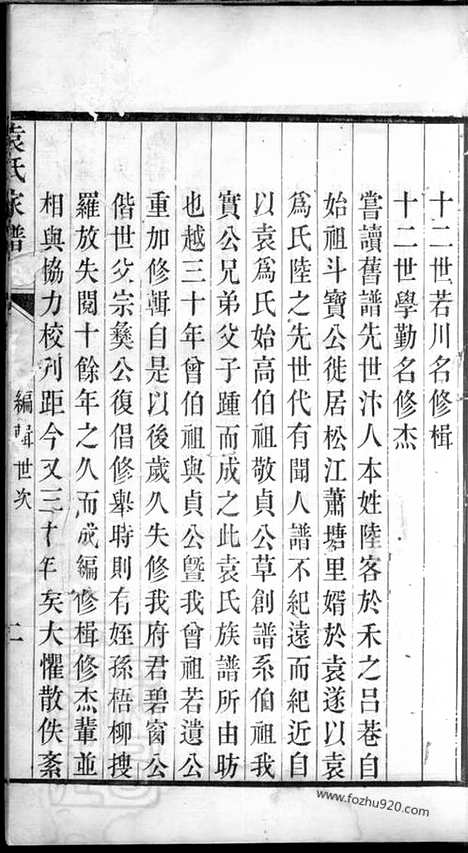 十二世若川名修楫
十二世學勤名修杰
嘗讀舊譜先世汴人本姓陸客於禾之呂巷自
始祖斗寶公徙居松江蕭塘里婿於袁遂以袁
爲氏陸之先世代有聞人譜不紀遠而紀近自
以袁爲氏始高伯祖敬貞公草創譜系伯祖我
實公兄弟父子踵而成之此袁氏族譜所由昉
也越三十年曾伯祖與貞公曁我曾祖若遺公
重加修輯自是以後歲久失修我府君碧窗公
偕世父宗彝公復倡修舉時則有姪孫梧柳搜
羅放失閱十餘年之久而成編修楫修杰輩並
相與協力校刋距今又三十年矣大懼散佚紊
袁氏家譜
編輯世次
二
www.fozhu920.com